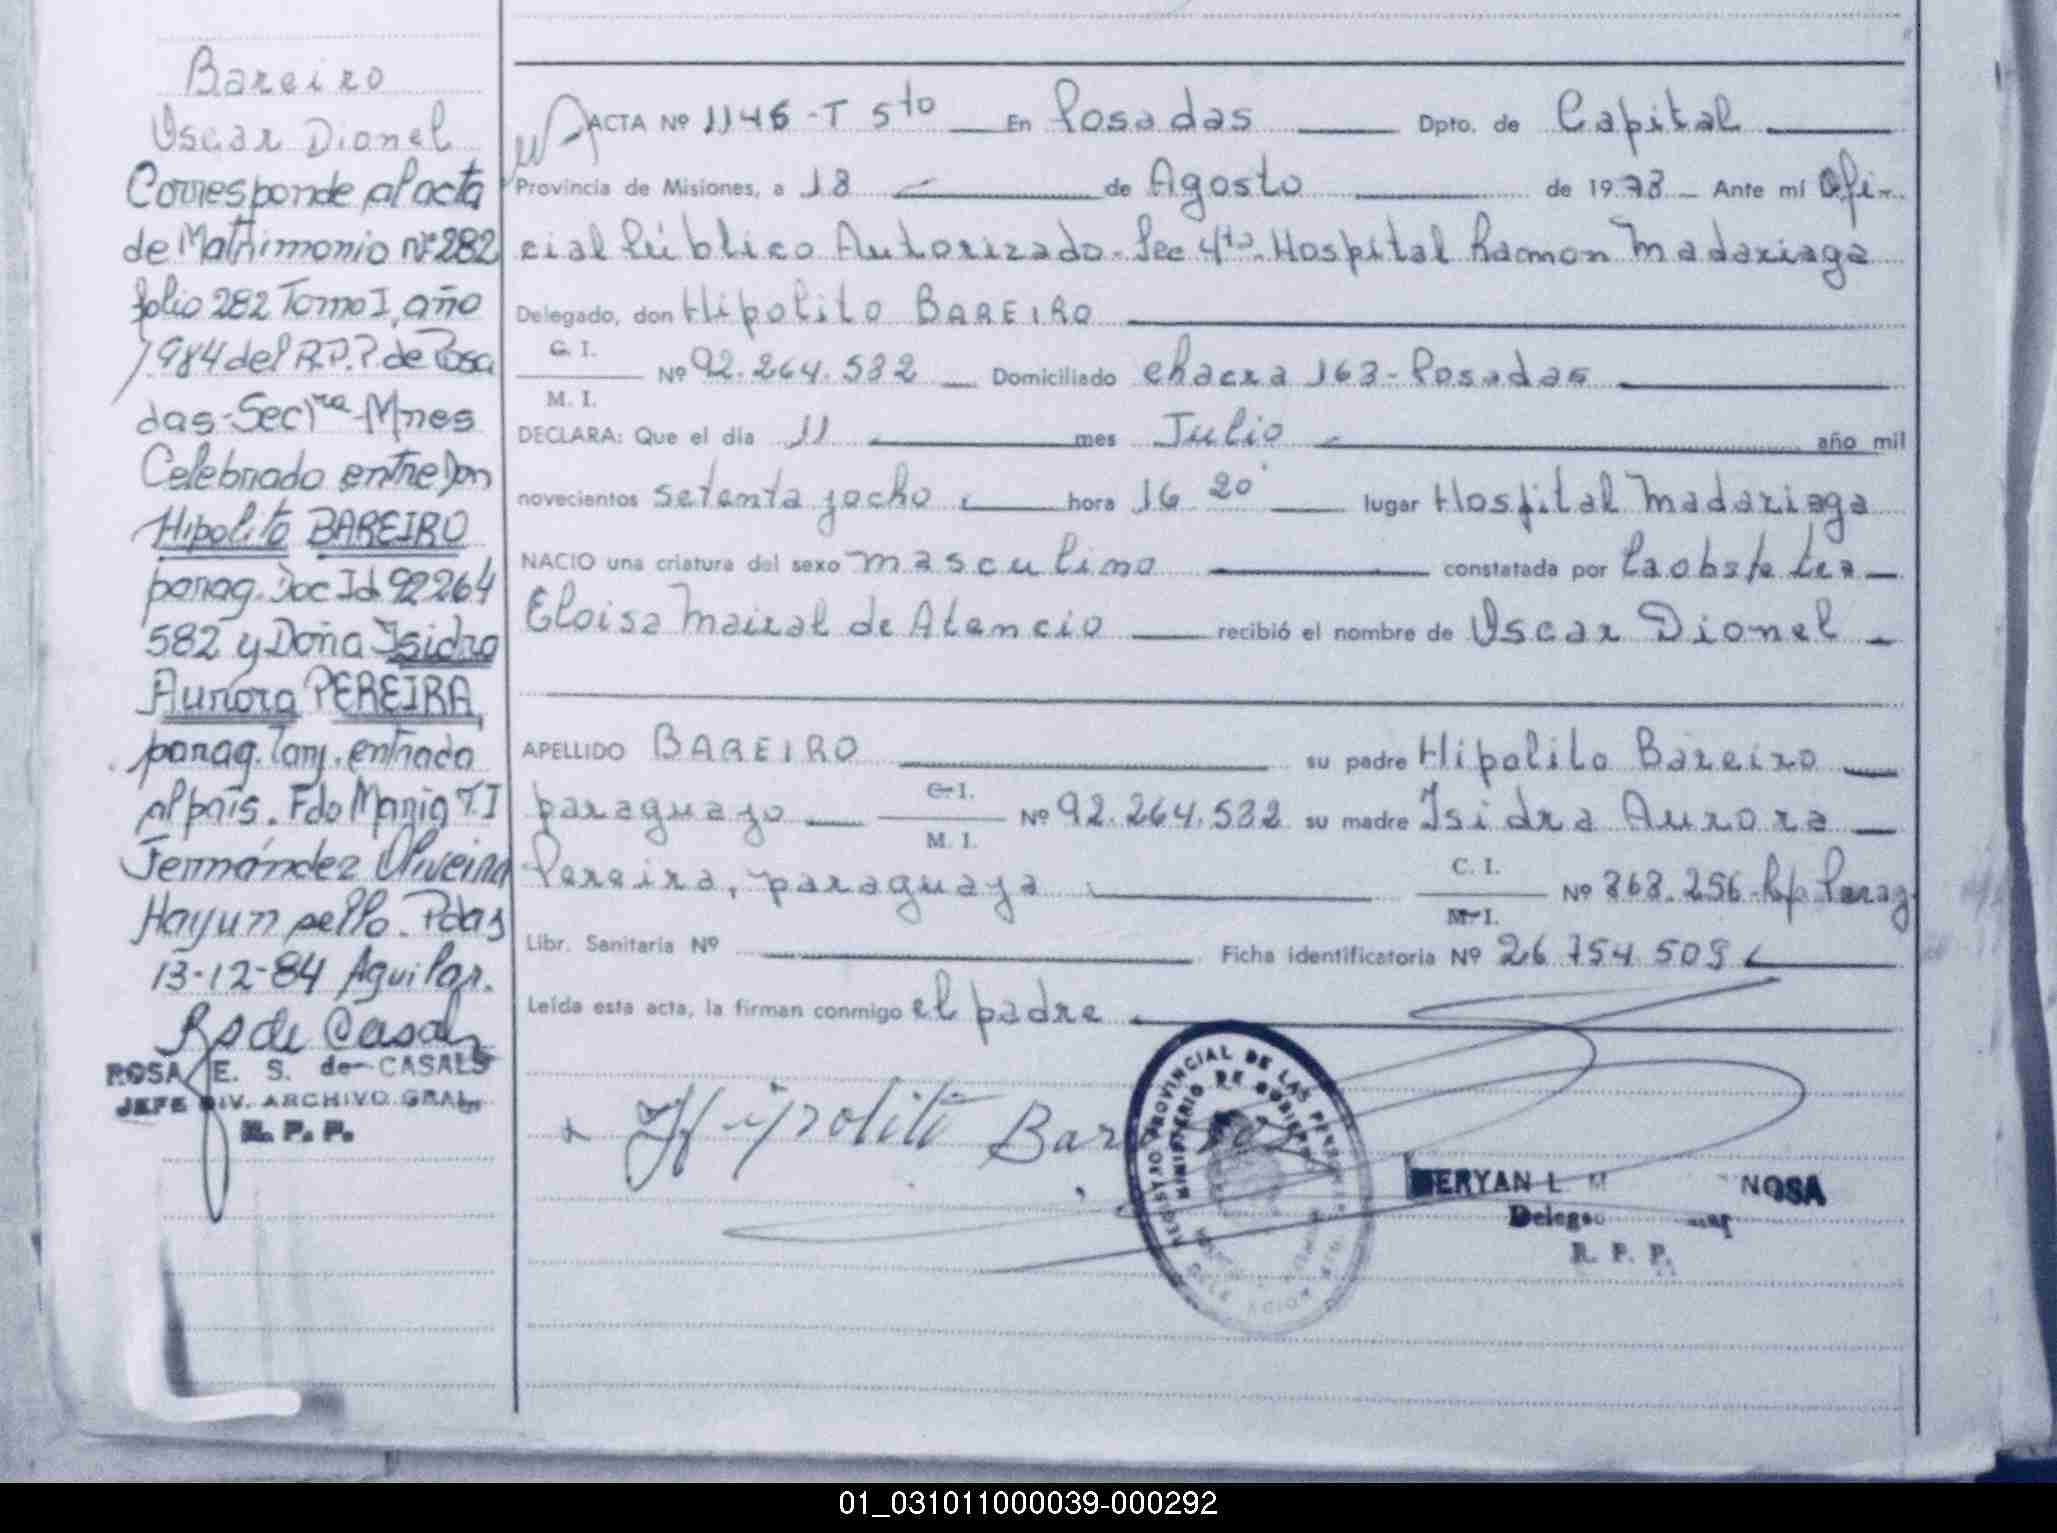 Bareiro
Oscar Dionel
Corresponde al acta
de Matrimonio Nº 282
folio 282 Tomo I, año
1984 del R.P.P. de Posa
das-Sec 1ra-Mnes
Celebrado entre Don
Hipolito BAREIRO
parag. Doc Id 92264
582 y Doña Isidra
Aurora PEREIRA
parag. Tarj. entrada
al país. Fdo Maria T. I
Fernández Oliveira
Hay un sello. Pdas
13-12-84 Aguilar.
Rs de Casals
ROSA E. S. de CASALS
JEFE DIV. ARCHIVO GRAL
R. P. P.
ACTA Nº 1146-T 5to En Posadas Dpto. de Capital
Provincia de Misiones, a 18 de Agosto de 1978 Ante mí Ofi-
cial Público Autorizado-Sec 4ta-Hospital Ramon Madariaga
Delegado, don Hipolito BAREIRO
C. I.
M. I.
Nº 92.264.532 Domiciliado chacra 163-Posadas
DECLARA: Que el día 11 mes Julio año mil
novecientos setenta yocho hora 16 20' lugar Hospital Madariaga
NACIO una criatura del sexo masculino constatada por la obstetra
Eloisa Mairal de Atencio recibió el nombre de Oscar Dionel
APELLIDO BAREIRO su padre Hipolito Bareiro
paraguayo C. I. M. I. Nº 92.264.532 su madre Isidra Aurora
Pereira, paraguaya C. I. M. I. Nº 868.256-Rp Parag
Libr. Sanitaria Nº Ficha identificatoria Nº 26 754 509
Leída esta acta, la firman conmigo el padre
Hipolito Bareiro
REGISTRO PROVINCIAL DE LAS PERSONAS
MINISTERIO DE GOBIERNO
DELEGACION
MERYAN L. M NOSA
R. P. P.
01_031011000039-000292